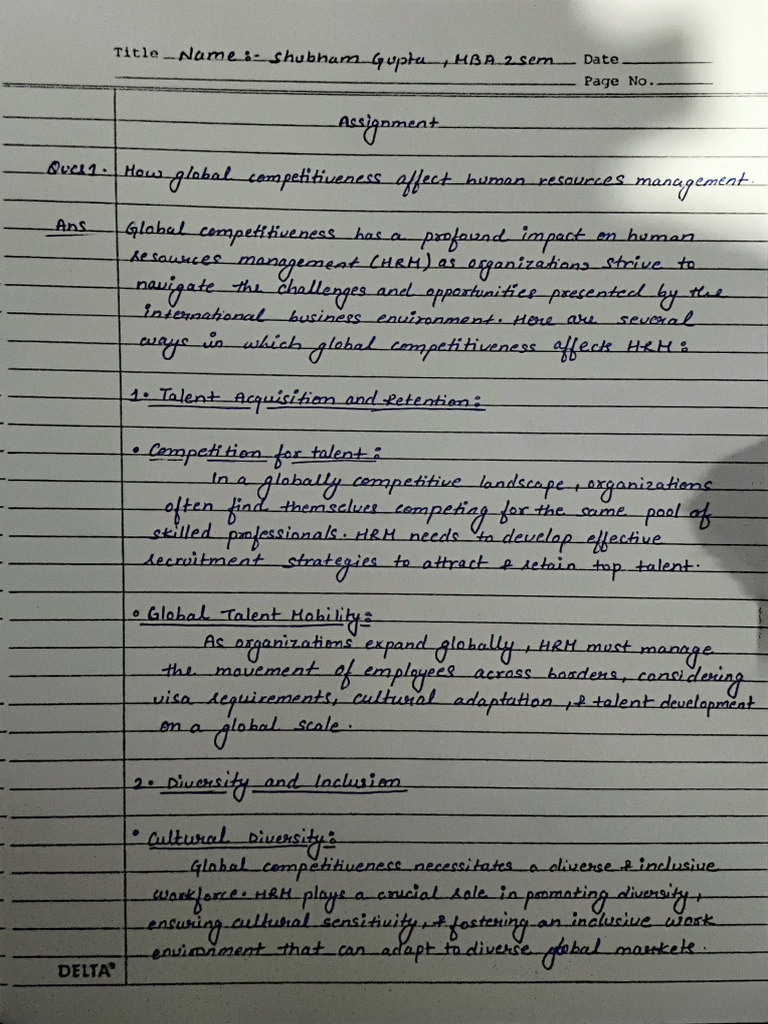 Title Name:- Shubham Gupta, MBA 2 sem Date
Page No.
Assignment
Ques 1. How global competitiveness affect human resources management.
Ans Global competitiveness has a profound impact on human
resources management (HRM) as organizations strive to
navigate the challenges and opportunities presented by the
international business environment. Here are several
ways in which global competitiveness affects HRM:
1. Talent Acquisition and Retention:
• Competition for talent:
In a globally competitive landscape, organizations
often find themselves competing for the same pool of
skilled professionals. HRM needs to develop effective
recruitment strategies to attract & retain top talent.
• Global Talent Mobility:
As organizations expand globally, HRM must manage
the movement of employees across borders, considering
visa requirements, cultural adaptation, & talent development
on a global scale.
2. Diversity and Inclusion
• Cultural Diversity:
Global competitiveness necessitates a diverse & inclusive
workforce. HRM plays a crucial role in promoting diversity,
ensuring cultural sensitivity, & fostering an inclusive work
environment that can adapt to diverse global markets.
DELTA®